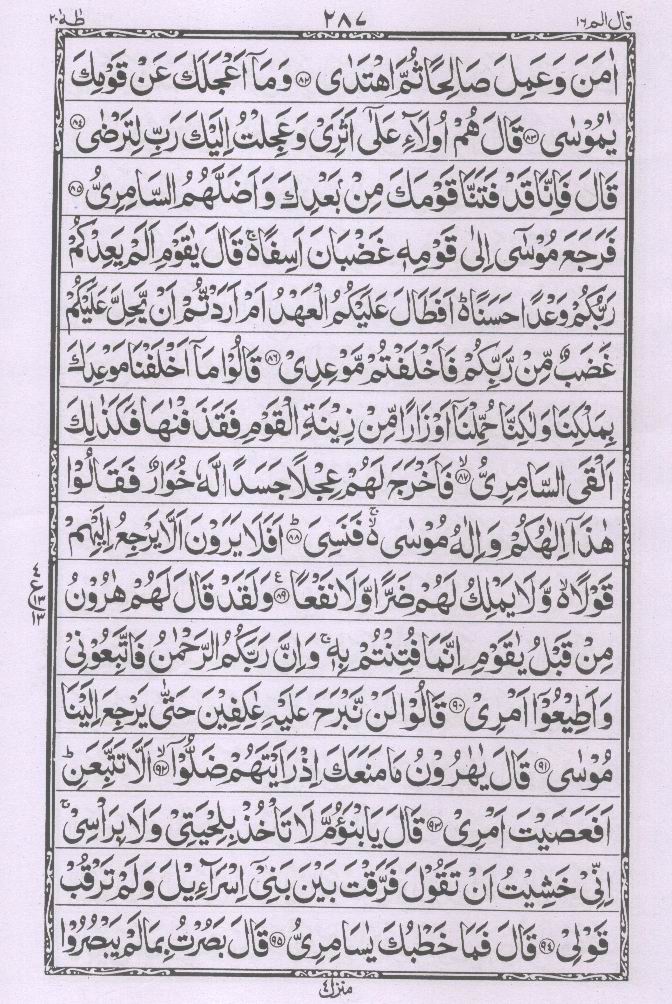 قال الم ١٦ ٢٨٧ طٰهٰ ٢٠
اٰمَنَ وَعَمِلَ صَالِحًا ثُمَّ اهْتَدٰى ﴿۸۲﴾ وَمَآ اَعْجَلَكَ عَنْ قَوْمِكَ
يٰمُوْسٰى ﴿۸۳﴾ قَالَ هُمْ اُولَآءِ عَلٰٓى اَثَرِىْ وَعَجِلْتُ اِلَيْكَ رَبِّ لِتَرْضٰى ﴿۸۴﴾
قَالَ فَاِنَّا قَدْ فَتَنَّا قَوْمَكَ مِنْ بَعْدِكَ وَاَضَلَّهُمُ السَّامِرِىُّ ﴿۸۵﴾
فَرَجَعَ مُوْسٰٓى اِلٰى قَوْمِهٖ غَضْبَانَ اَسِفًا ۚ۬ قَالَ يٰقَوْمِ اَلَمْ يَعِدْكُمْ
رَبُّكُمْ وَعْدًا حَسَنًا ؕ۬ اَفَطَالَ عَلَيْكُمُ الْعَهْدُ اَمْ اَرَدْتُّمْ اَنْ يَّحِلَّ عَلَيْكُمْ
غَضَبٌ مِّنْ رَّبِّكُمْ فَاَخْلَفْتُمْ مَّوْعِدِىْ ﴿۸۶﴾ قَالُوْا مَآ اَخْلَفْنَا مَوْعِدَكَ
بِمَلْكِنَا وَلٰكِنَّا حُمِّلْنَآ اَوْزَارًا مِّنْ زِيْنَةِ الْقَوْمِ فَقَذَفْنٰهَا فَكَذٰلِكَ
اَلْقَى السَّامِرِىُّ ۙ﴿۸۷﴾ فَاَخْرَجَ لَهُمْ عِجْلًا جَسَدًا لَّهٗ خُوَارٌ فَقَالُوْا
هٰذَآ اِلٰهُكُمْ وَاِلٰهُ مُوْسٰى ۬ۚ فَنَسِىَ ؕ﴿۸۸﴾ اَفَلَا يَرَوْنَ اَلَّا يَرْجِعُ اِلَيْهِمْ
قَوْلًا ۬ۙ وَّلَا يَمْلِكُ لَهُمْ ضَرًّا وَّلَا نَفْعًا ﴿۸۹﴾ وَلَقَدْ قَالَ لَهُمْ هٰرُوْنُ
٤ ع ١٣ ١٣
مِنْ قَبْلُ يٰقَوْمِ اِنَّمَا فُتِنْتُمْ بِهٖ ۚ وَاِنَّ رَبَّكُمُ الرَّحْمٰنُ فَاتَّبِعُوْنِىْ
وَاَطِيْعُوْٓا اَمْرِىْ ﴿۹۰﴾ قَالُوْا لَنْ نَّبْرَحَ عَلَيْهِ عٰكِفِيْنَ حَتّٰى يَرْجِعَ اِلَيْنَا
مُوْسٰى ﴿۹۱﴾ قَالَ يٰهٰرُوْنُ مَا مَنَعَكَ اِذْ رَاَيْتَهُمْ ضَلُّوْٓا ۙ﴿۹۲﴾ اَلَّا تَتَّبِعَنِ ؕ
اَفَعَصَيْتَ اَمْرِىْ ﴿۹۳﴾ قَالَ يَابْنَؤُمَّ لَا تَاْخُذْ بِلِحْيَتِىْ وَلَا بِرَاْسِىْ ۚ
اِنِّىْ خَشِيْتُ اَنْ تَقُوْلَ فَرَّقْتَ بَيْنَ بَنِىْٓ اِسْرَآءِيْلَ وَلَمْ تَرْقُبْ
قَوْلِىْ ﴿۹۴﴾ قَالَ فَمَا خَطْبُكَ يٰسَامِرِىُّ ﴿۹۵﴾ قَالَ بَصُرْتُ بِمَا لَمْ يَبْصُرُوْا
منزل ٤